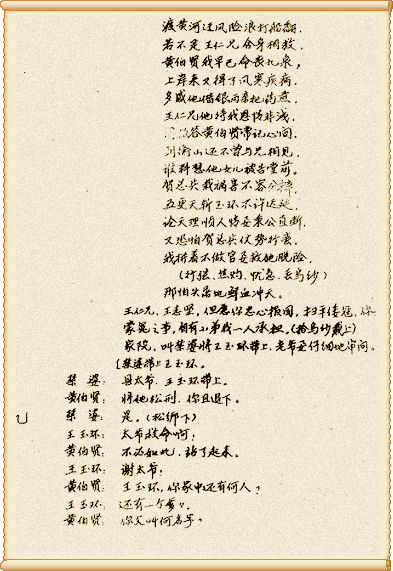 渡黄河过风险浪打船翻，
若不是王仁兄舍身相救，
黄伯贤我早已命丧九泉，
上岸来又得了风寒疾病，
多感他借银两亲把药煎，
王仁兄他待我恩情非浅，
黄伯贤常记心间，
衡山还不曾与兄相见，
谁料想他女儿被告堂前。
贺总兵栽祸害不容分辩，
五更天斩玉环不许迟延，
论天理顺人情要秉公直断，
又恐怕贺总兵仗势行蛮，
我拼着不做官要救她脱险，
那怕头落地鲜血冲天。
王仁兄，王志坚，但愿你忠心报国，扫平倭寇，你
家冤之事，自有小弟我一人承担。（拾乌纱戴上）
家院，叫禁婆将王玉环带上，老爷要仔细地审问。
〔禁婆带上王玉环。
禁婆：县太爷，王玉环带上。
黄伯贤：将她松刑，你且退下。
禁婆：是。（松绑下）
王玉环：太爷救命啊！
黄伯贤：不必如此，站了起来。
王玉环：谢太爷！
黄伯贤：王玉环，你家中还有何人？
王玉环：还有一个爹。
黄伯贤：你父叫何名字？